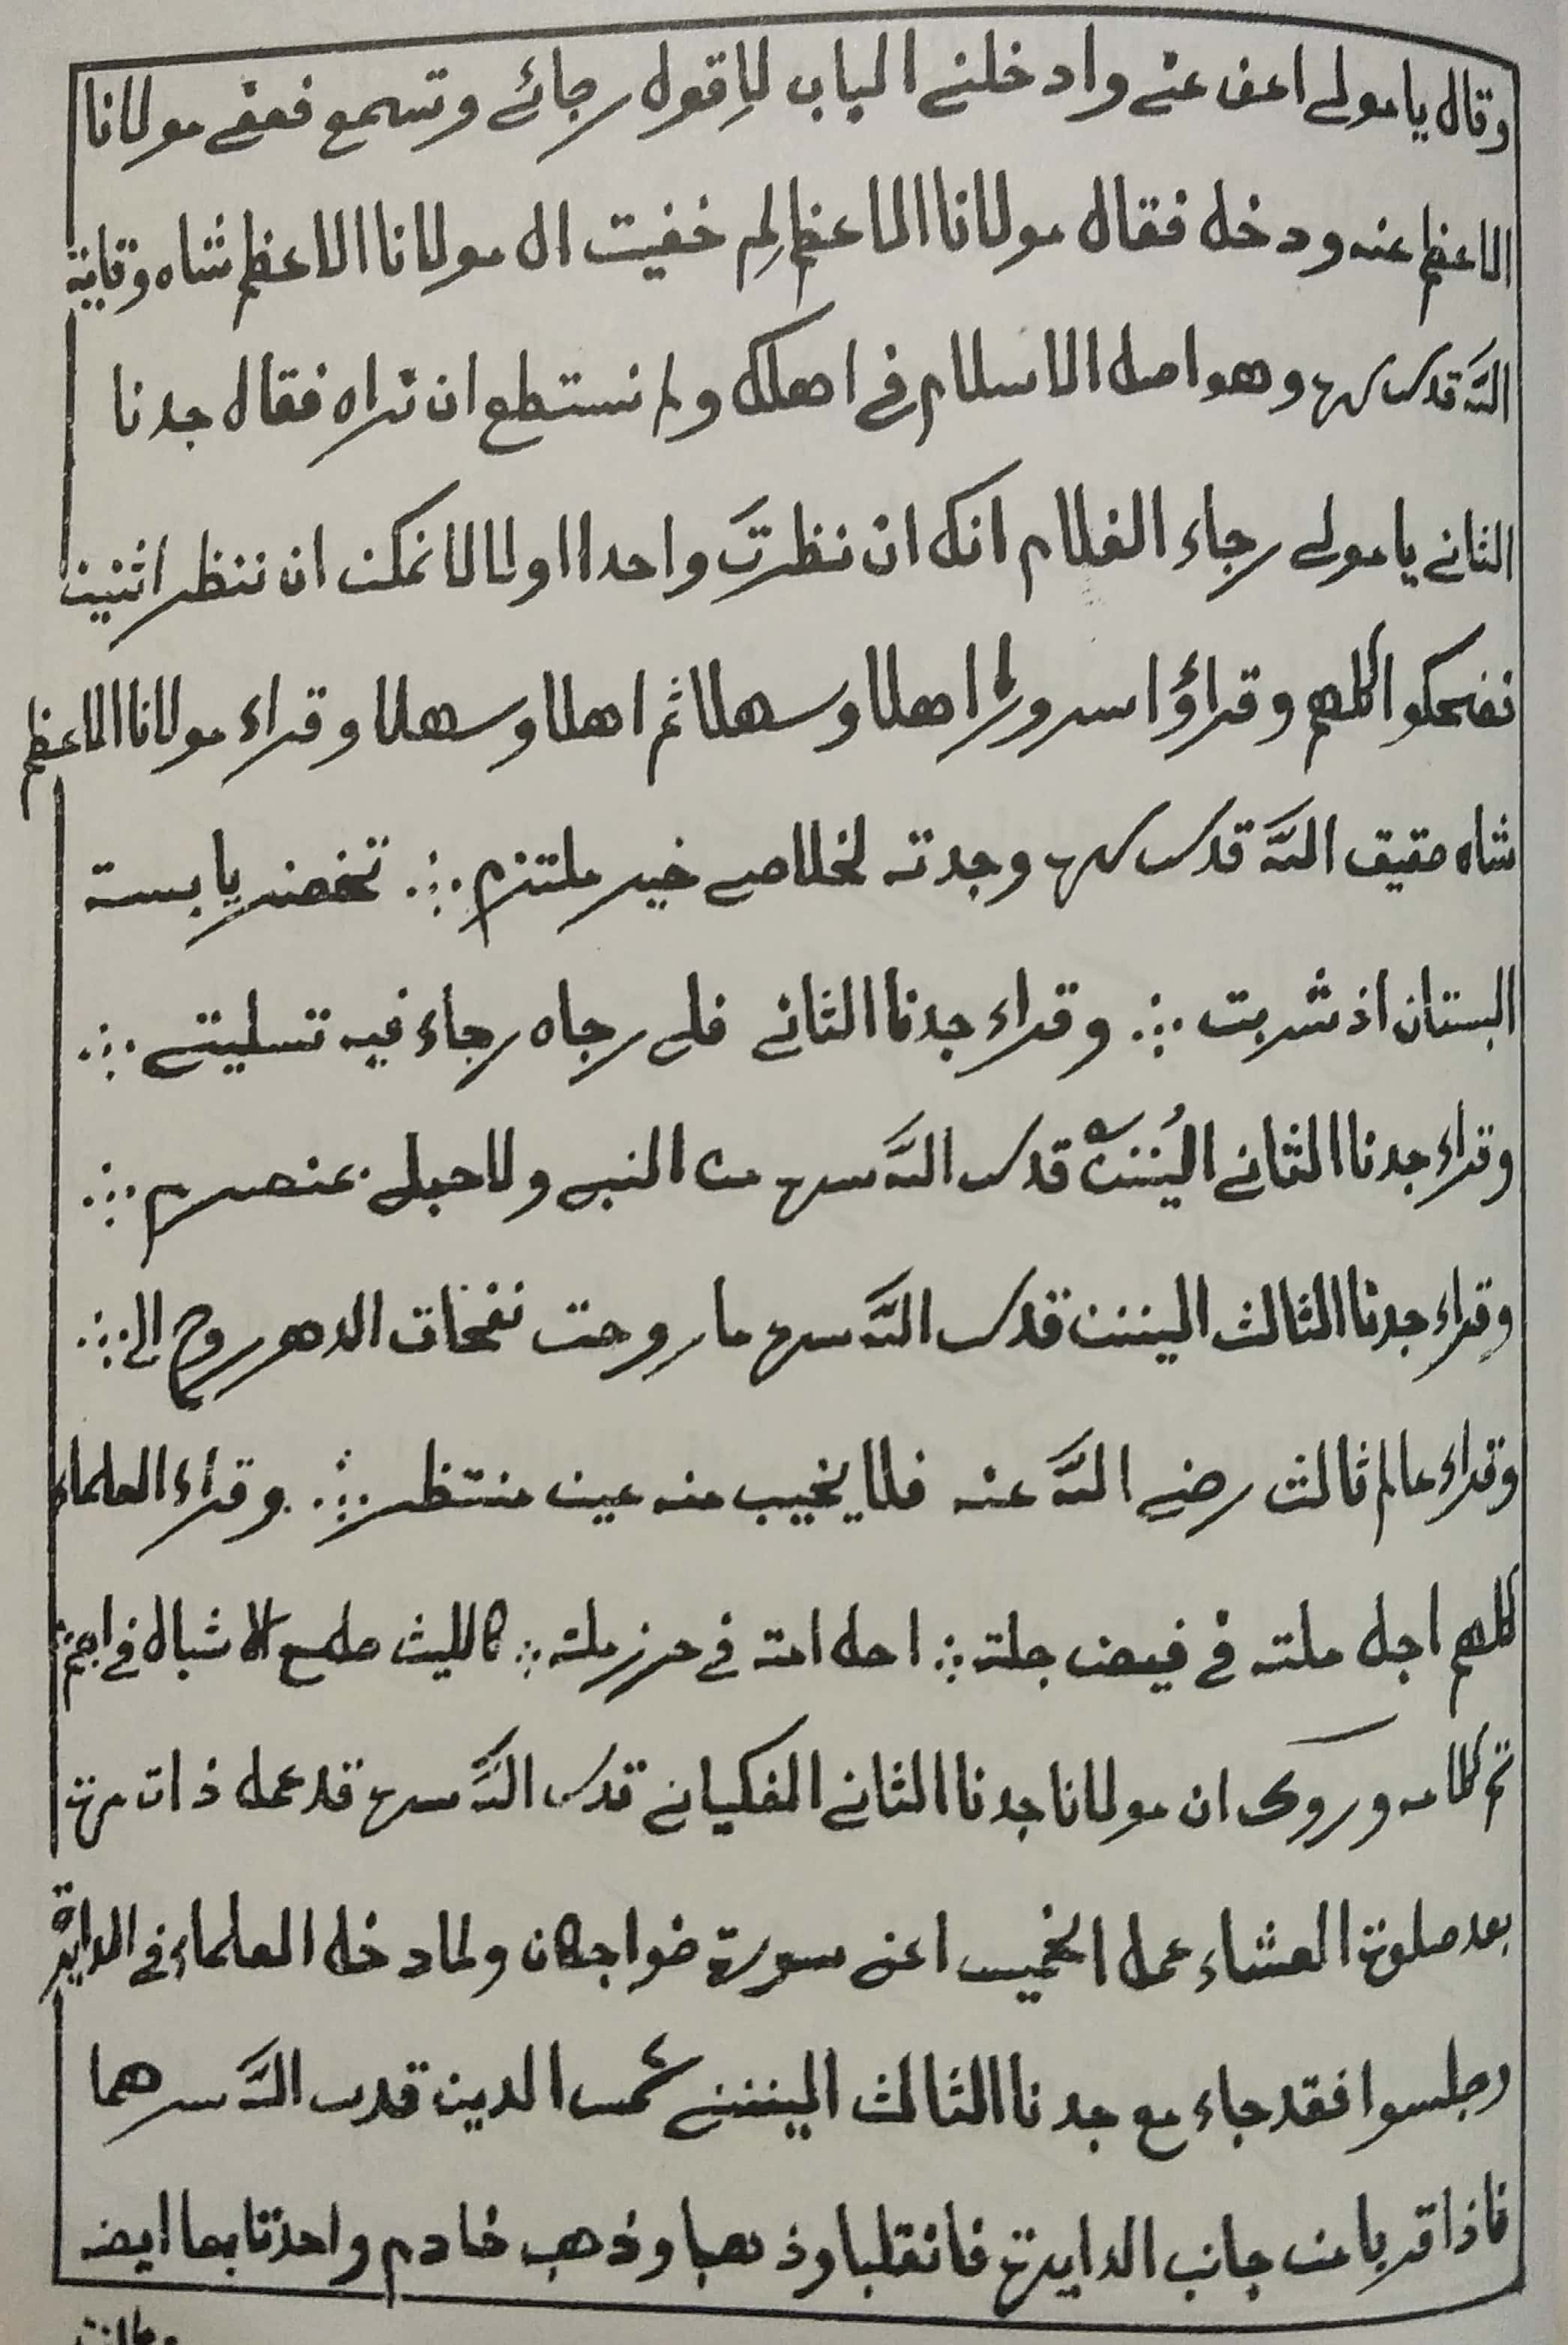 وقال يا مولى اعف عني وادخلني الباب لاِقول رجائے وتسمع فعفى مولانا
الاعظم عنه ودخل فقال مولانا الاعظم لِم خفيت ال مولانا الاعظم شاه وقاية
اللّه قدس سره وهو اصل الاسلام في اهلك ولم نستطع ان نراه فقال جدنا
الثاني يا مولى رجاء الغلام انك ان نظرتَ واحدا اولا لا نمكن ان ننظر اثنين
فضحكوا كلهم وقراؤا سرورا اهلا وسهلا ثم اهلا وسهلا وقراء مولانا الاعظم
شاه حقيق اللّه قدس سره وجدته لخلاصي خير ملتزم ؞ تخضر يابسة
البستان اذ شربت ؞ وقراء جدنا الثاني فلي رجاه رجاء فيه تسليتي ؞
وقراء جدنا الثاني اليُننى قدس اللّه سره من النبي ولا حبلي بمنصرم ؞
وقراء جدنا الثالث اليننى قدس اللّه سره ما روحت نفحات الدهر روح الى ؞
وقراء عالم ثالث رضي اللّه عنه فلا يخيب منه عين منتظر ؞ وقراء العلماء
كلهم اجل ملته في فيض جلة ؞ احل امته في حرز ملته ؞ كالليث طمع الاشبال في اجم
تم كلامه وروى ان مولانا جدنا الثاني الفكياني قدس اللّه سره قد عمل ذات مرة
بعد صلوة العشاء عمل الخميس اعني سورة خواجكان ولما دخل العلماء في الدايرة
وجلسوا فقد جاء مع جدنا الثالث اليننى شمس الدين قدس اللّه سرهما
فاذا قربا من جانب الدايرة فانقلبا وذهبا وذهب خادم واحد تابعا ايض